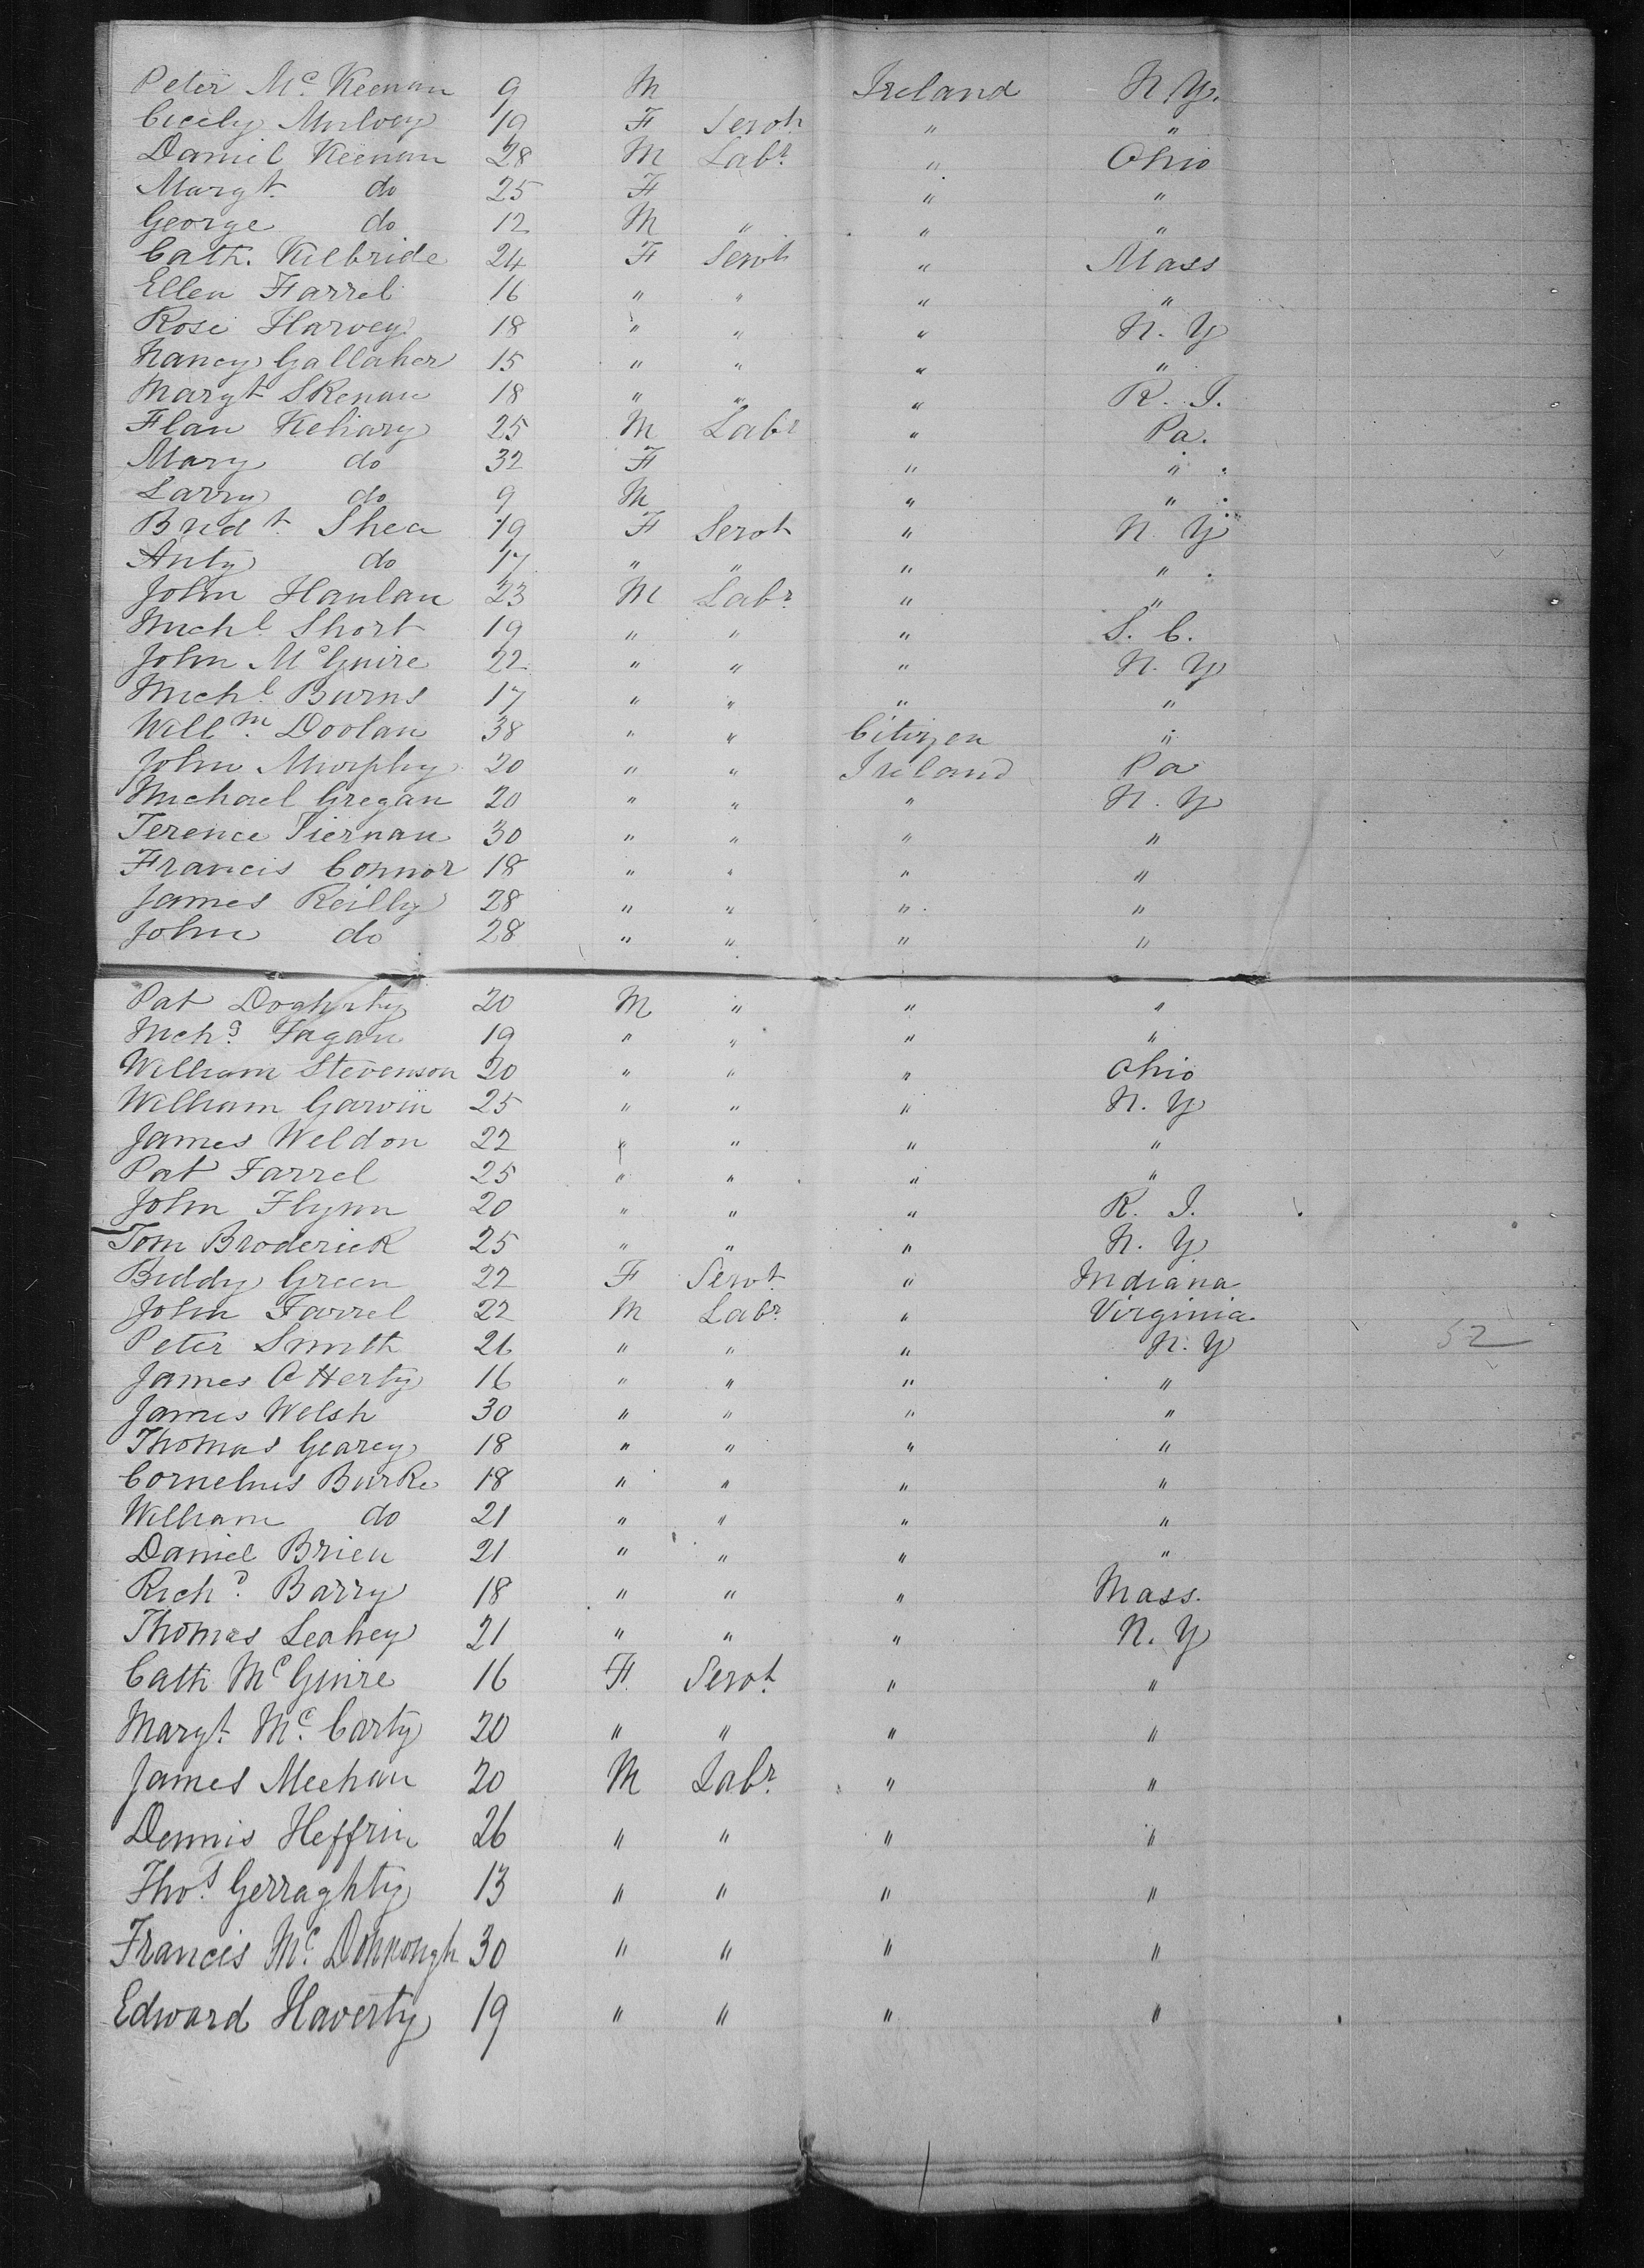 Peter Mc. Keenan 9 M Ireland N.Y.
Cicely Mulvey 19 F Servt " "
Daniel Keenan 28 M Labr. " Ohio
Margt. do 25 F " "
George do 12 M " " "
Cath. Kilbride 24 F Servt " Mass
Ellen Farrel 16 " " " "
Rose Harvey 18 " " " N. Y
Nancy Gallaher 15 " " " "
Margt Skenan 18 " " " R. I.
Flan Kehary 25 M Labr " Pa.
Mary do 32 F " "
Larry do 9 M " "
Bridt. Shea 19 F Servt " N Y
Anty do 17 " " " "
John Hanlan 23 M Labr. " "
Michl. Short 19 " " " S. C.
John McGuire 22 " " " N. Y
Michl. Burns 17 " " " "
Willm. Doolan 38 " " Citizen "
John Murphy 20 " " Ireland Pa
Michael Gregan 20 " " " N. Y
Terence Tiernan 30 " " " "
Francis Connor 18 " " " "
James Reilly 28 " " " "
John do 28 " " " "
Pat Doghrty 20 M " " "
Fagan 19 " " " "
William Stevenson 20 " " " Ohio
William Garvin 25 " " " N. Y
James Weldon 22 " " " "
Pat Farrel 25 " " " "
John Flynn 20 " " " R. I.
Tom Broderick 25 " " " N. Y
Biddy Green 22 F Servt. " Indiana
John Farrel 22 M Labr. " Virginia.
Peter Smith 26 " " " N. Y 52
James O Herty 16 " " " "
James Welsh 30 " " " "
Thomas Gearey 18 " " " "
Cornelius Burke 18 " " " "
William do 21 " " " "
Daniel Brien 21 " " " "
Richd. Barry 18 " " " Mass.
Thomas Leahey 21 " " " N. Y
Cath McGuire 16 F. Servt. " "
Margt. Mc. Carty 20 " " " "
James Meehan 20 M Labr. " "
Dennis Heffrin 26 " " " "
Thos. Gerraghty 13 " " " "
Francis Mc. Donnough 30 " " " "
Edward Haverty 19 " " " "